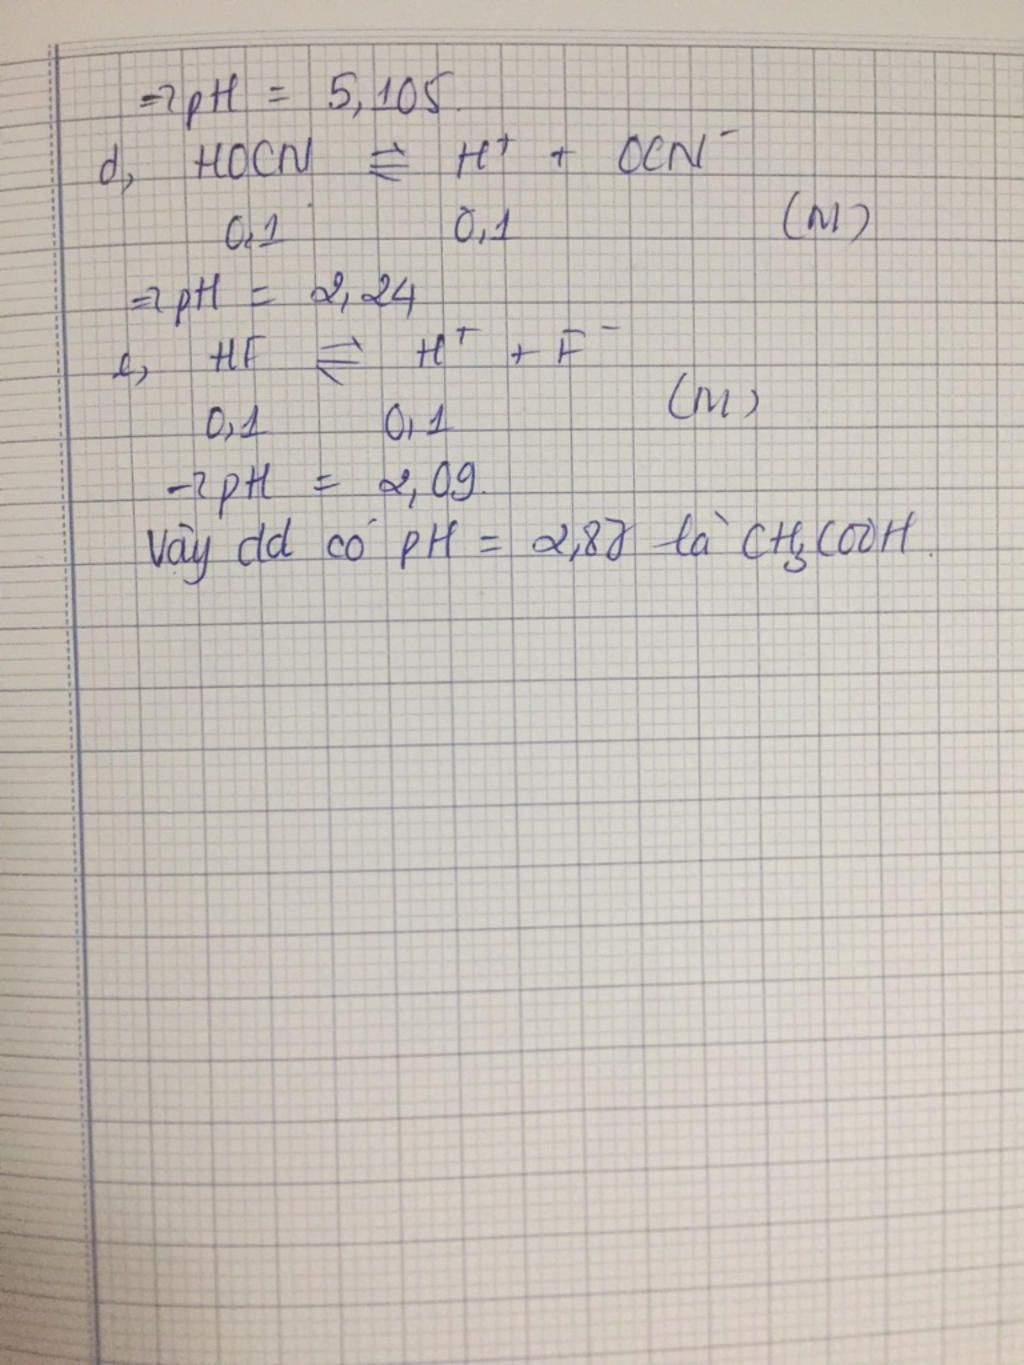 ⇒ pH = 5,105.
d, HOCN ⇌ H⁺ + OCN⁻
0,1 0,1 (M)
⇒ pH = 2,24
e, HF ⇌ H⁺ + F⁻
0,1 0,1 (M)
→ pH = 2,09.
Vậy dd có pH = 2,87 là CH₃COOH.